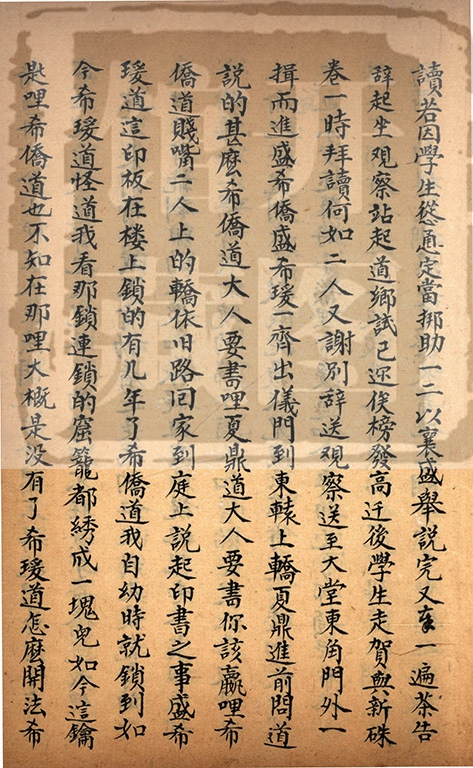 讀若因學生慫通定當挪助一二以襄盛舉說完又奉一遍茶告
辞起坐观察站起道鄉試已迩俟榜發高迁後學生走賀與新硃
卷一時拜讀何如二人又謝別辞送观察送至大堂東角門外一
揖而進盛希僑盛希瑗一齊出儀門到東轅上轎夏鼎進前問道
說的甚麽希僑道大人要書哩夏鼎道大人要書你該贏哩希
僑道賤嘴二人上的轎依旧路回家到庭上說起印書之事盛希
瑗道這印板在楼上鎖的有几年了希僑道我自幼時就鎖到如
今希瑗道怪道我看那鎖連鎖的窟窿都綉成一塊兒如今這鑰
匙哩希僑道也不知在那哩大概是没有了希瑗道怎麽開法希